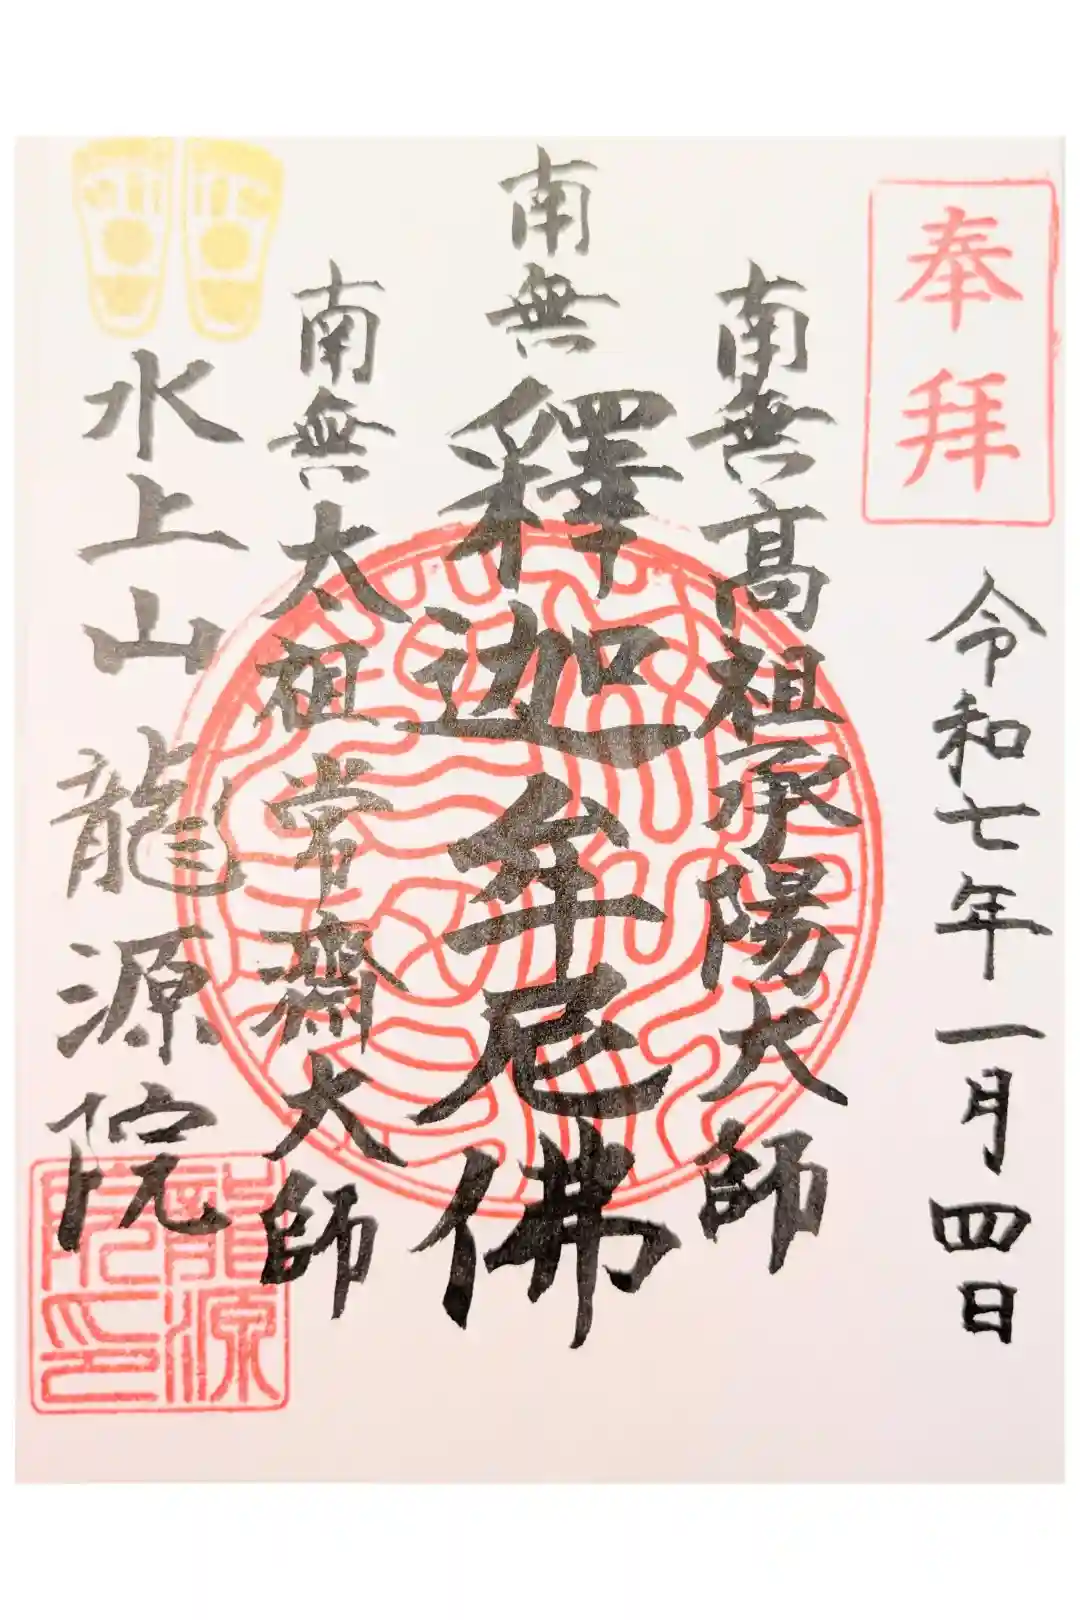 奉拜
令和七年一月四日
南無高祖承陽大師
南無釋迦牟尼佛
南無太祖常齋大師
水上山龍源院
龍源院印